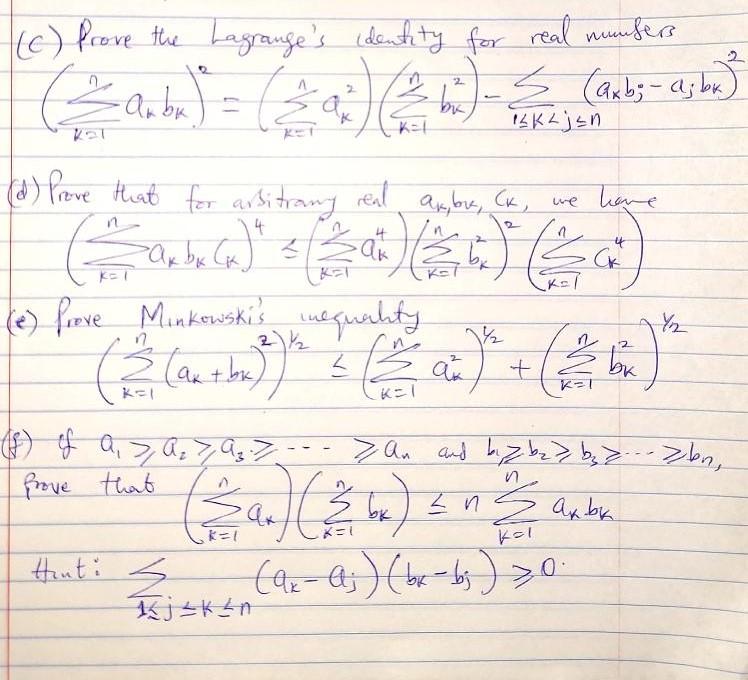 (c) Prove the Lagrange's identity for real numbers
(∑_{k=1}^{n} a_k b_k)^2 = (∑_{k=1}^{n} a_k^2)(∑_{k=1}^{n} b_k^2) - ∑_{1≤k<j≤n} (a_k b_j - a_j b_k)^2
(d) Prove that for arbitrary real a_k, b_k, c_k, we have
(∑_{k=1}^{n} a_k b_k c_k)^4 ≤ (∑_{k=1}^{n} a_k^4)(∑_{k=1}^{n} b_k^2)^2 (∑_{k=1}^{n} c_k^4)
(e) Prove Minkowski's inequality
(∑_{k=1}^{n} (a_k + b_k)^2)^{1/2} ≤ (∑_{k=1}^{n} a_k^2)^{1/2} + (∑_{k=1}^{n} b_k^2)^{1/2}
(f) if a_1 ≥ a_2 ≥ a_3 ≥ --- ≥ a_n and b_1 ≥ b_2 ≥ b_3 ≥ --- ≥ b_n,
prove that (∑_{k=1}^{n} a_k)(∑_{k=1}^{n} b_k) ≤ n ∑_{k=1}^{n} a_k b_k
Hint: ∑_{1≤j≤k≤n} (a_k - a_j)(b_k - b_j) ≥ 0.